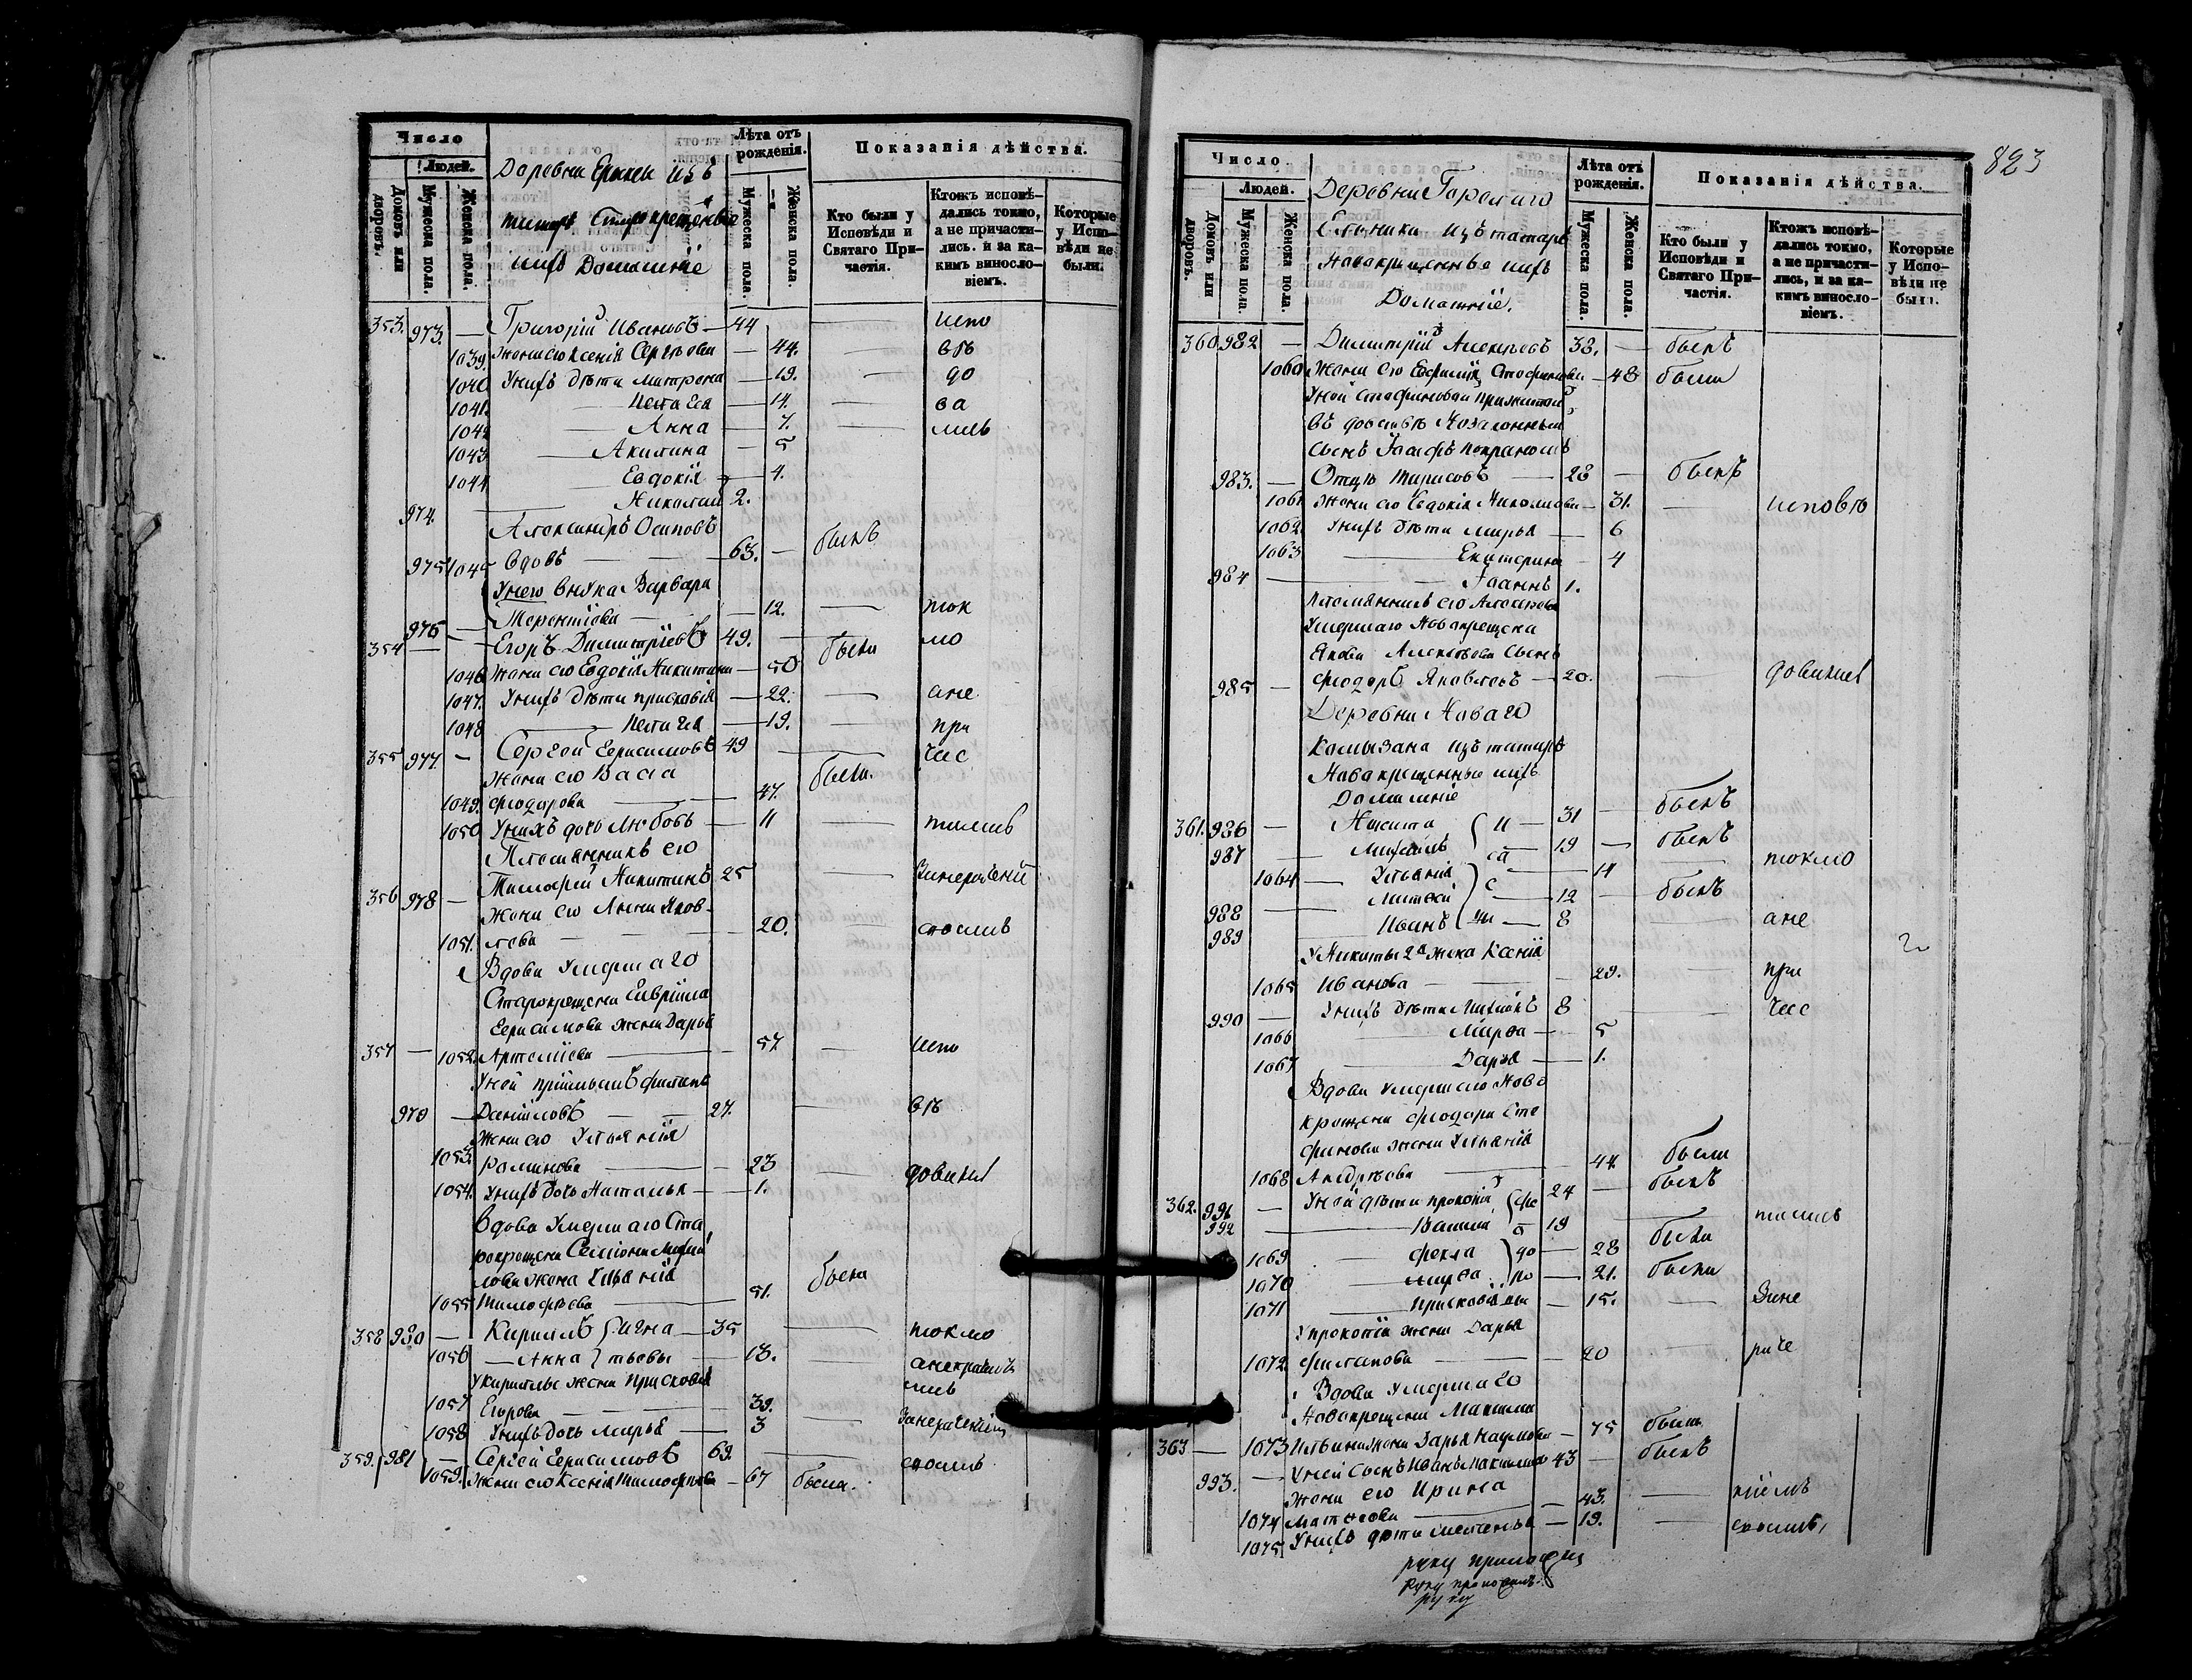 Число
Людей.
Домовъ или дворовъ.
Мужеска пола.
Женска пола.
Деревни Ерыклы изъ
татаръ Старокрещеные
ихъ Домашніе
Лѣта отъ рожденія.
Мужеска пола.
Женска пола.
Показанія дѣйства.
Кто были у Исповѣди и Святаго Причастія.
Ктожъ исповѣдались токмо, а не причастились, и за какимъ винословіемъ.
Которые у Исповѣди не были.
353. 973. — Григорій Ивановъ — 44 — испо
1039. Жена его Ксенія Сергѣева — 44. — вѣ
1040 У нихъ дѣти Матрона — 19. — до
1041. — Пелагея — 14. — ва
1042 — Анна — 7. — лись
1043. — Акилина — 5
1044 — Евдокія — 4.
974. — Николай 2.
Александръ Осиповъ
975 1045 вдовъ — 63. — былъ
У него внука Варвара
Терентіева — 12. — ток
354 976 — Егоръ Димитріевъ 49. — мо
1046 Жена его Евдокія Никитина — 50 была
1047. У нихъ дѣти Прасковія — 22. — ане
1048 — Пелагея — 19. — при
355 977 — Сергей Герасимовъ 49 — час
Жена его Васса
1049. Ѳеодорова — 47. была.
1050 У нихъ дочь Любовь — 11 — тились
Племянникъ его
356 978 — Тимофей Никитинъ 25 — Занерачені
Жена его Анна Яков-
1051. лева — 20. —
Вдова Умершаго
Старокрещена Гавріила
Герасимова жена Дарья
357 — 1052. Артеміева — 57. — испо
У ней пріимышъ Филипъ
979 — Даніиловъ — 27. — вѣ
Жена его Ульянія
1053. Романова — 23 — довались
1054. У нихъ дочь Наталья — 1.
Вдова Умершаго Ста
рокрещена Семіона Михай
лова жена Ульянія
1055 Тимофѣева — 51. была
358 980 — Кирилъ Игна — 35 — токмо
1056 — Анна тьевы — 13. —
У Кирилы жена Прасковья
1057 Егорова — 39.
1058 У нихъ дочь Марья — 3
359. 981 — Сергей Герасимовъ 69. —
1059. Жена его Ксенія Тимофѣева — 67 была.
823
Число.
Людей.
Домовъ или дворовъ.
Мужеска пола.
Женска пола.
Деревни Горелаго
Ельника изъ татаръ
Новокрещенные ихъ
Домашніе.
Лѣта отъ рожденія.
Мужеска пола.
Женска пола.
Показанія дѣйства.
Кто были у Исповѣди и Святаго Причастія.
Ктожъ исповѣдались токмо, а не причастились, и за какимъ винословіемъ.
Которые у Исповѣди не были.
360 982 — Димитрій Алексѣевъ 38. — былъ
1060 Жена его Евфимія Стефанова — 48 была
У ней Стефановой прижитой
въ довствѣ незаконный
сынъ Іосифъ
983. — Отцу Тарасовъ — 28 — былъ
1061 Жена его Евдокія Николаева — 31. — исповѣ
1062 У нихъ дѣти Марья — 6
1063 — Екатерина — 4
984 — Іоаннъ 1.
Племянникъ его Алексѣева
Умершаго Новокрещена
Якова Алексѣева сынъ
985 — Ѳеодоръ Яковлевъ — 20. — довались
Деревни Новаго
Калмызана изъ татаръ
Новокрещенные ихъ
Домашніе
361. 986 — Никита И — 31 — былъ
987 — Михаилъ са — 19 — былъ
1064 — Ульянія — 14 — токмо
988 — Матвей — 12 — былъ
989 — Иванъ — 8 — ане
У Никиты 2я жена Ксенія
1065 Иванова — 29. — при
990 — У нихъ дѣти Михаилъ 8 — час
1066 — Марѳа — 5
1067 — Дарья — 1.
Вдова Умершаго Ново
крещена Ѳеодора Сте
фанова жена Ульянія
1068 Андрѣева — 47. была
362. 991 — У ней дѣти Прокопій Ѳе 24 — былъ
992 — Василій о 19 — тились
1069 — Ѳекла до — 28 была
1070 — Марѳа ро — 21. была
1071 — Прасковія вы — 15. — Зане
У Прокопія жена Дарья
1072. Филипова — 20 — раче
Вдова Умершаго
Новокрещена Максима
363 — 1073 Ильина жена Дарья Наумова — 75 была
993. — У ней сынъ Иванъ Максимовъ 43 — былъ
Жена его Ирина
1074 Матвѣева — 43. — ніемъ
1075 У нихъ дѣти Меланья — 19. —
руку приложилъ
руку приложилъ
руку